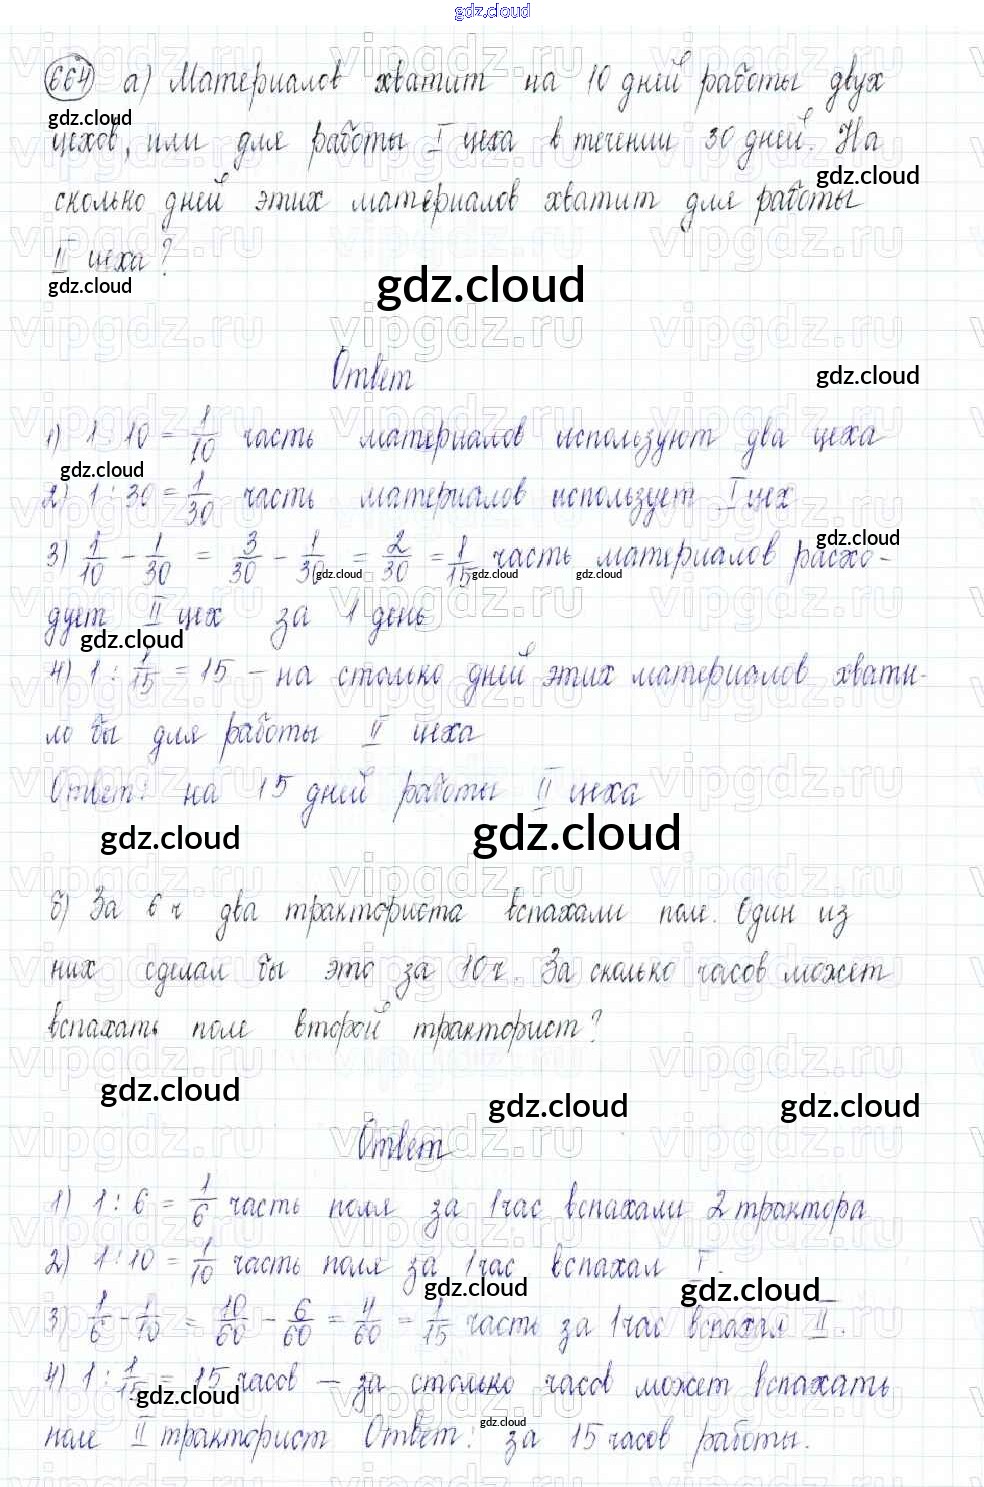 gdz.cloud
664 а) Материалов хватит на 10 дней работы двух
gdz.cloud
цехов, или для работы I цеха в течении 30 дней. На
gdz.cloud
сколько дней этих материалов хватит для работы
II цеха?
gdz.cloud
gdz.cloud
Ответ
gdz.cloud
1) 1 : 10 = 1/10 часть материалов используют два цеха
gdz.cloud
2) 1 : 30 = 1/30 часть материалов использует I цех
gdz.cloud
3) 1/10 - 1/30 = 3/30 - 1/30 = 2/30 = 1/15 часть материалов расхо-
gdz.cloud gdz.cloud gdz.cloud
дует II цех за 1 день
gdz.cloud
4) 1 : 1/15 = 15 – на столько дней этих материалов хвати-
ло бы для работы II цеха
Ответ: на 15 дней работы II цеха
gdz.cloud gdz.cloud
б) За 6 ч два тракториста вспахали поле. Один из
них сделал бы это за 10 ч. За сколько часов может
вспахать поле второй тракторист?
gdz.cloud gdz.cloud gdz.cloud
Ответ
1) 1 : 6 = 1/6 часть поля за 1 час вспахали 2 трактора
2) 1 : 10 = 1/10 часть поля за 1 час вспахал I.
gdz.cloud gdz.cloud
3) 1/6 - 1/10 = 10/60 - 6/60 = 4/60 = 1/15 часть за 1 час вспахал II.
4) 1 : 1/15 = 15 часов – за столько часов может вспахать
gdz.cloud
gdz.cloud
поле II тракторист Ответ: за 15 часов работы.
vipgdz.ru